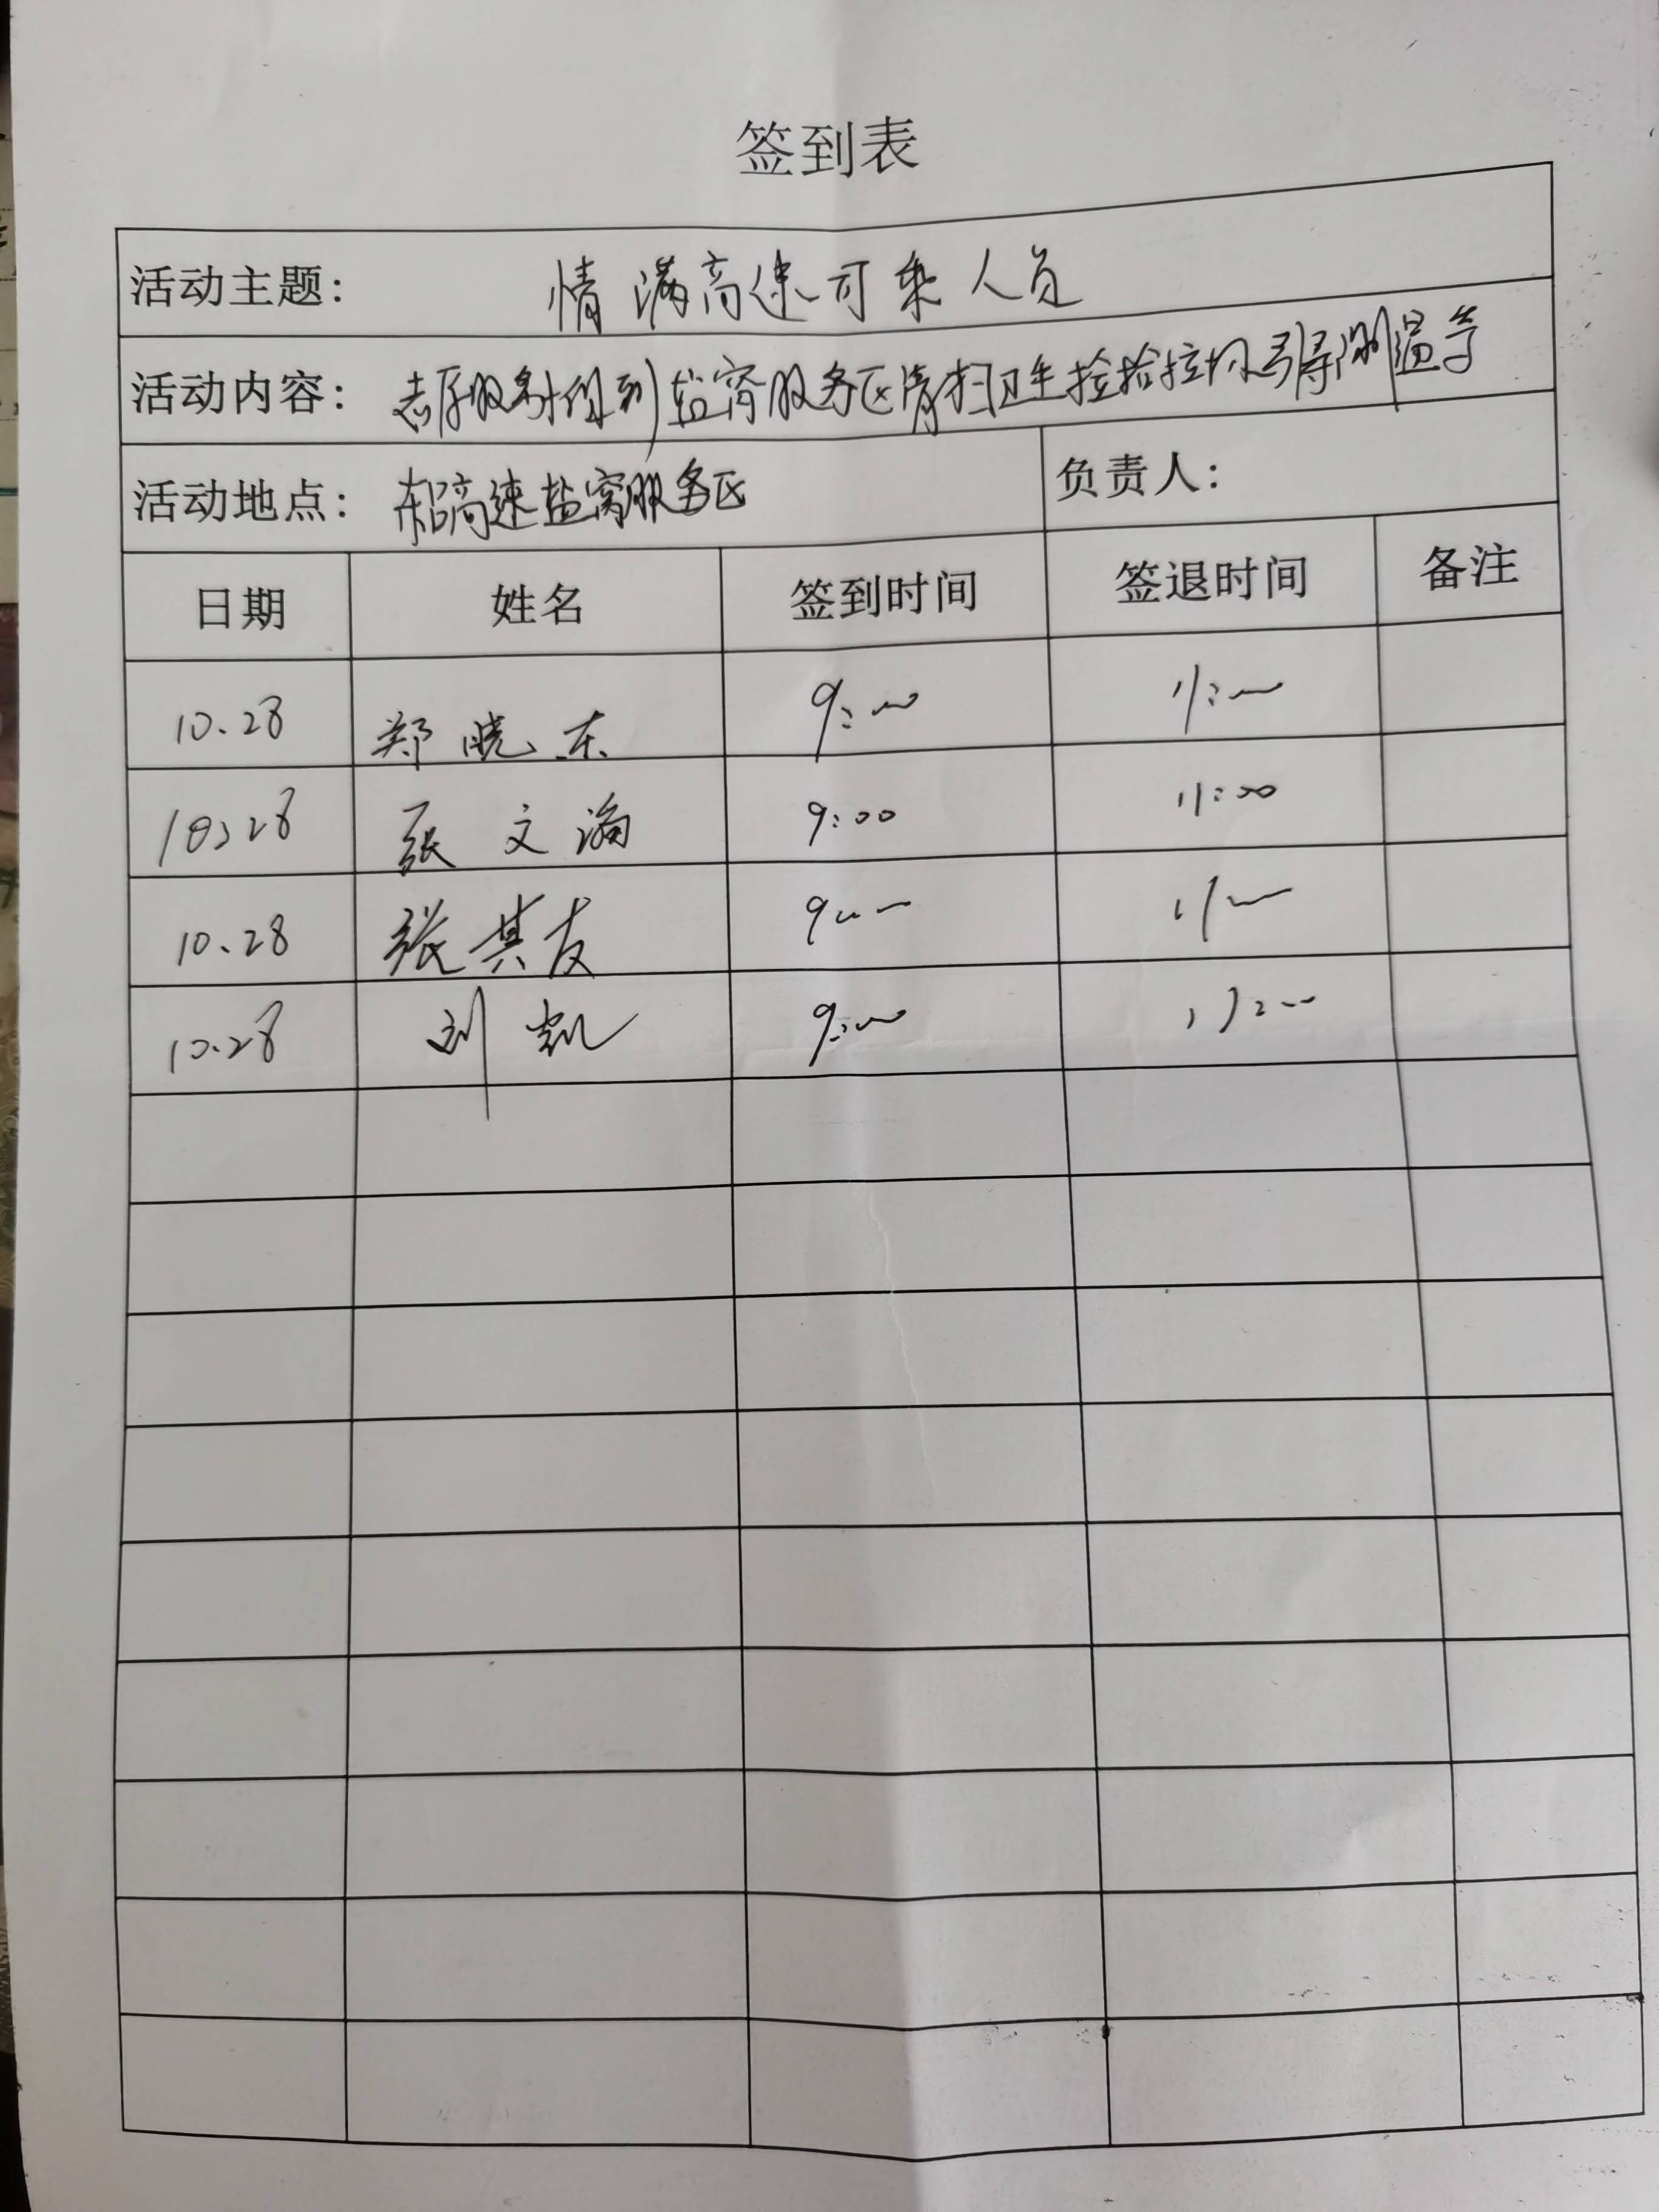 签到表
活动主题： 情满高速可乘人员
活动内容： 志愿服务小组到盐窝服务区清扫卫生捡拾垃圾引导测温等
活动地点： 东吕高速盐窝服务区 负责人：
日期 姓名 签到时间 签退时间 备注
10.28 郑晓东 9:00 11:00
10.28 张文瀚 9:00 11:00
10.28 张其友 9:00 11:00
10.28 刘凯 9:00 11:00